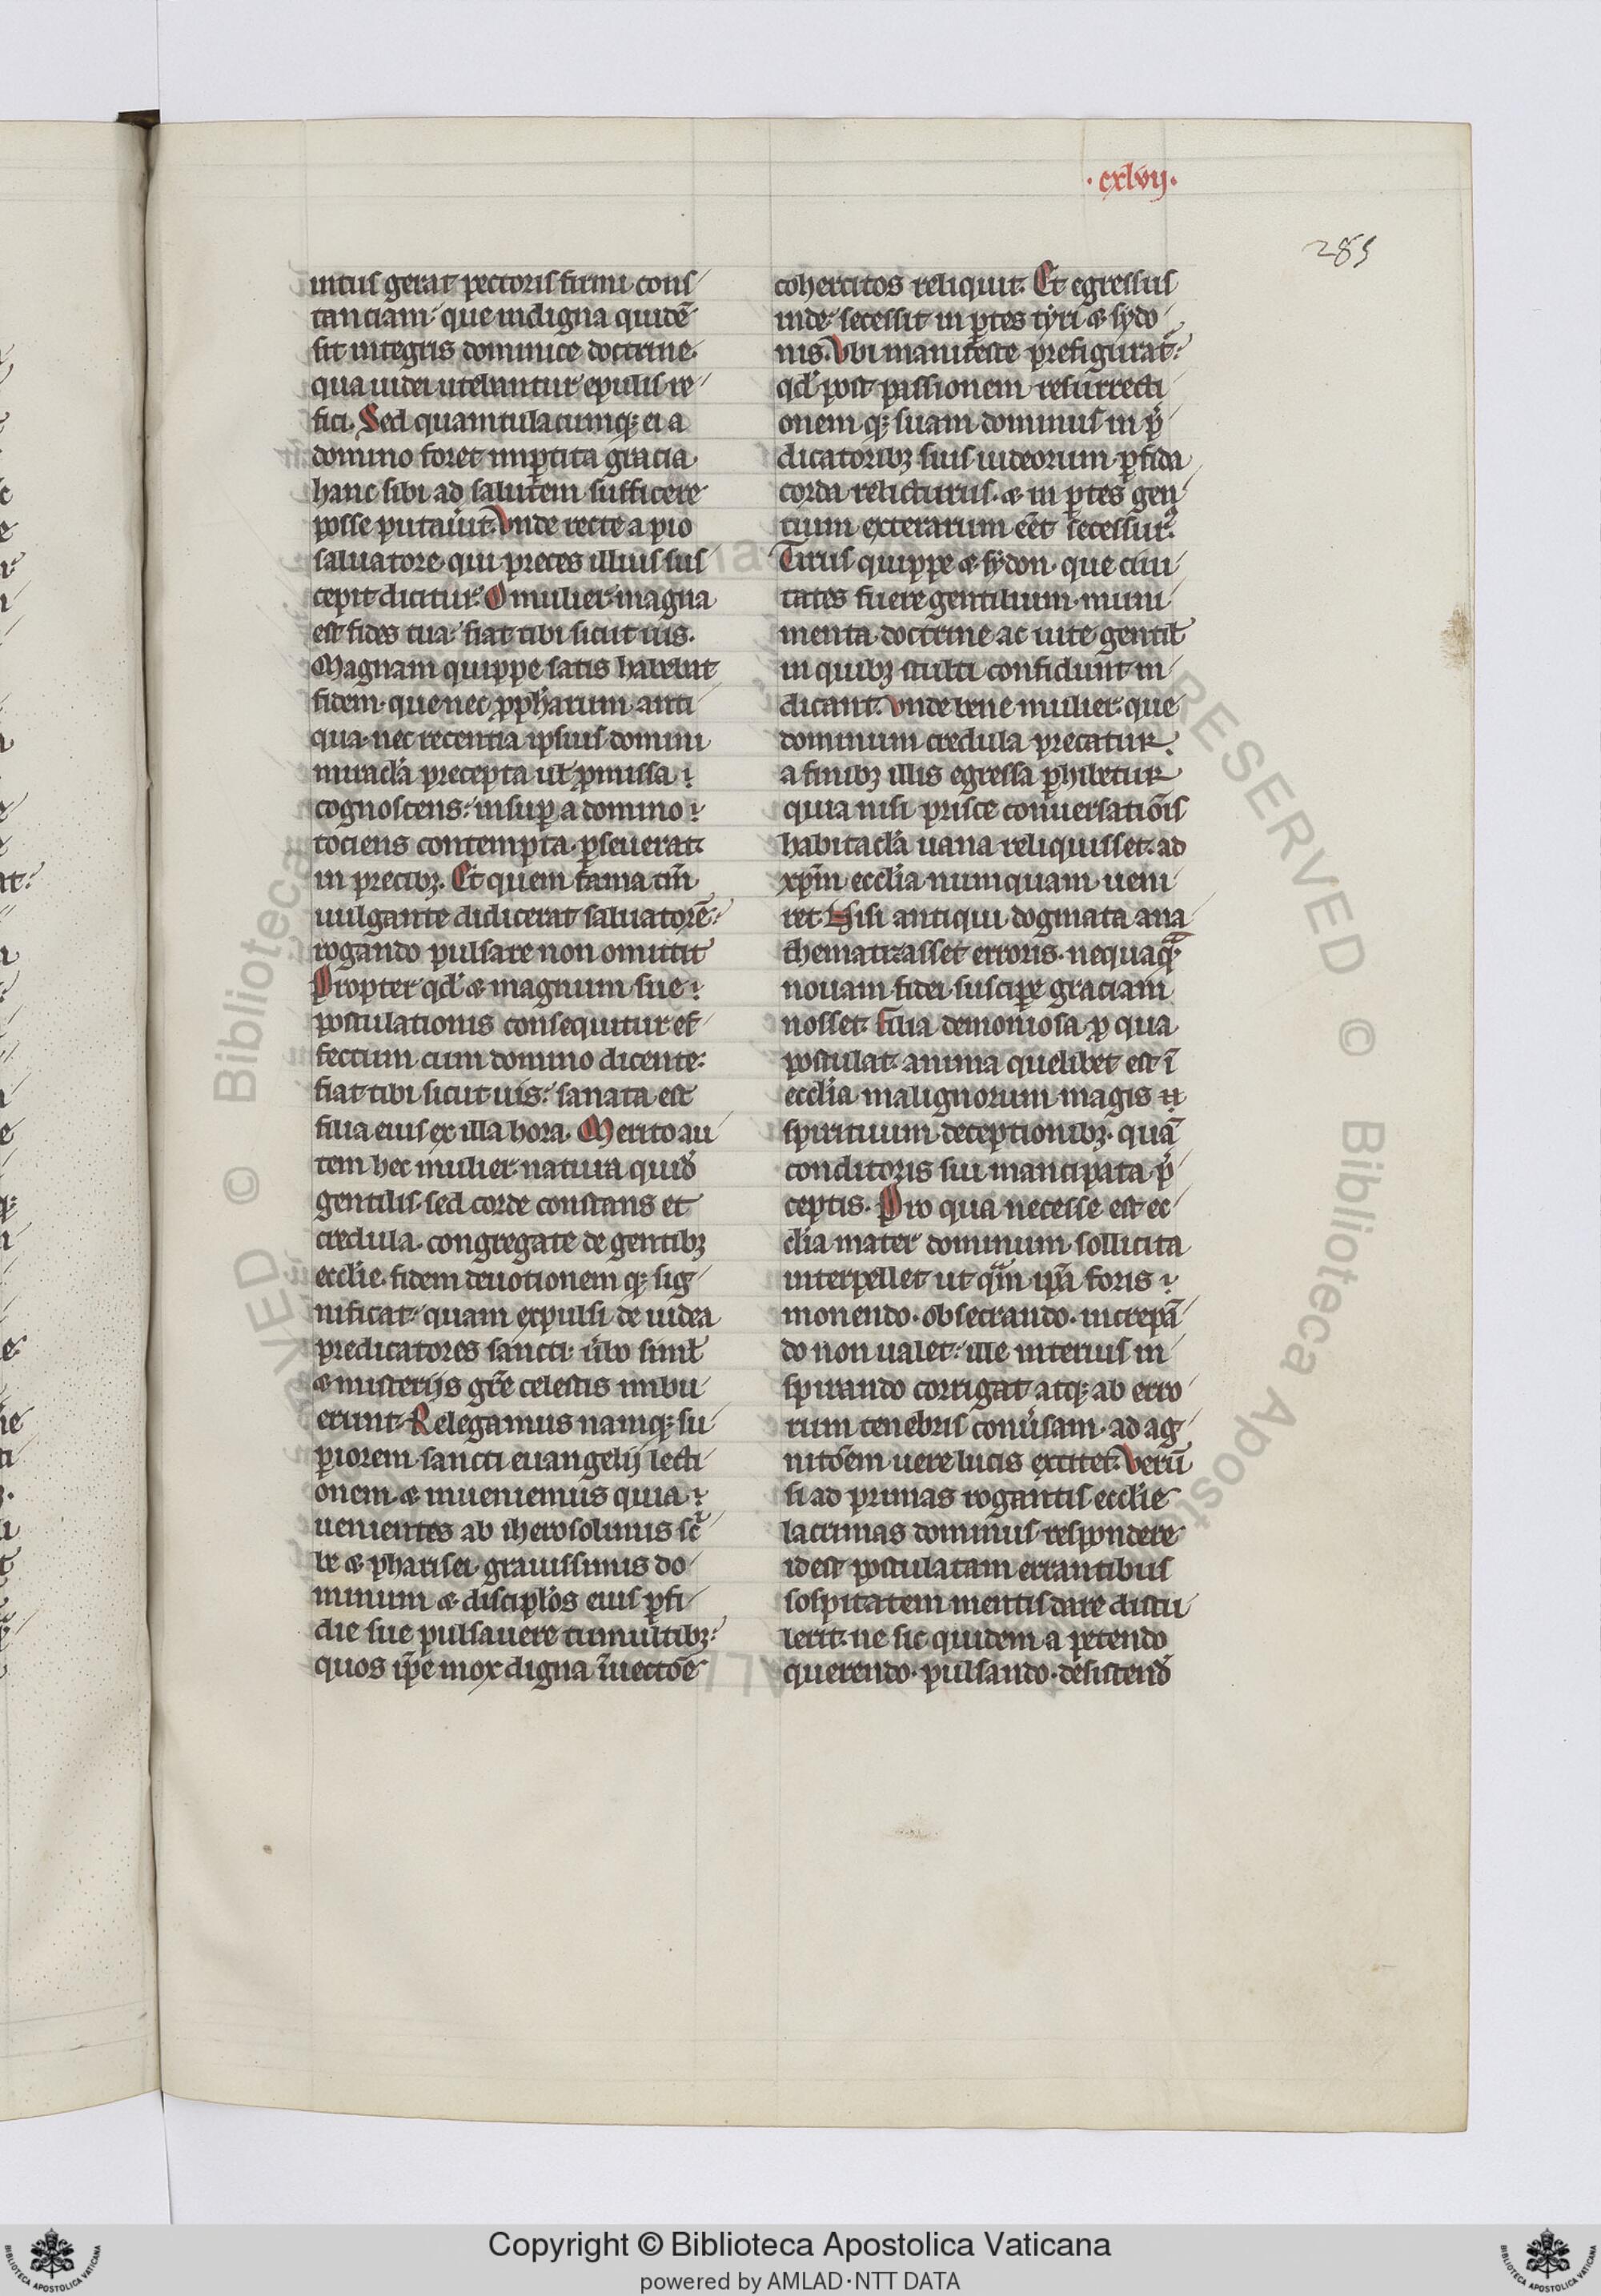 · cxlvij ·
285
intus gerat pectoris firmi cons
tanciam que indigna quidē
sit integris dominice doctrine
qua iudei utebantur epulis re
fici. Sed quamtulacumqꝫ ei a
domino foret imꝑtita gracia
hanc sibi ad salutem sufficere
posse putauit. Vnde recte a pio
saluatore qui preces illius sus
cepit dicitur. O mulier magna
est fides tua fiat tibi sicut uis.
Magnam quippe satis habebat
fidem que nec ꝓph̄arum anti
qua nec recentia ipsius domini
miracl̄a precepta ul̄ ꝓmissa
cognoscens insuꝑ a domino
tociens contempta ꝑseuerat
in precibꝫ. Et quem fama tm̄
uulgante didicerat saluatorē
rogando pulsare non omittit
Propter qd̄ & magnum sue
postulationis consequitur ef
fectum cum domino dicente
fiat tibi sicut uis sanata est
filia eius ex illa hora. Merito au
tem hec mulier natura quid̄
gentilis sed corde constans et
credula congregate de gentibꝫ
eccl̄ie fidem deuotionem qꝫ sig
nificat quam expulsi de iudea
predicatores sancti ūbo simul̄
& misterijs gr̄e celestis imbu
erunt. Relegamus namqꝫ su
ꝑiorem sancti euangelij lecti
onem & inueniemus quia
uenientes ab iherosolimis sc̄
be & pharisei grauissimis do
minum & discipl̄os eius ꝑfi
die sue pulsauere tumultibꝫ
quos ip̄e mox digna īuectōe
cohercitos reliquit. Et egressus
inde secessit in ꝑtes tyri & sydo
nis. Vbi manifeste prefigurat̄
qd̄ post passionem resurrecti
onem qꝫ suam dominus in p̄
dicatoribꝫ suis iudeorum ꝑfida
corda relicturus & in ꝑtes gen
tium exterarum eēt secessur᷒
Tirus quippe & sydon que ciui
tates fuere gentilium muni
menta doctrine ac uite gentil̄
in quibꝫ stulti confidunt in
dicant. Vnde bene mulier que
dominum credula precatur
a finibꝫ illis egressa ꝑhibetur
quia nisi prisce conuersatiōis
habitacl̄a uana reliquisset ad
xp̄m eccl̄ia numquam ueni
ret. Nisi antiqui dogmata ana
thematizasset erroris nequaqᷓ
nouam fidei susciꝑe graciam
nosset. Filia demoniosa ꝓ qua
postulat anima quelibet est ī
eccl̄ia malignorum magis
spirituum deceptionibꝫ quā
conditoris sui mancipata p̄
ceptis. Pro qua necesse est ec
cl̄ia mater dominum sollicita
interpellet ut qm̄ ip̄a foris
monendo obsecrando increpā
do non ualet ille interius in
spirando corrigat atqꝫ ab erro
rum tenebris conūsam ad ag
nitōem uere lucis excitet. Verū
si ad primas rogantis eccl̄ie
lacrimas dominus respondere
id est postulatam errantibus
sospitatem mentis dare distu
lerit ne sic quidem a petendo
querendo pulsando desistend̄
Copyright © Biblioteca Apostolica Vaticana
powered by AMLAD·NTT DATA